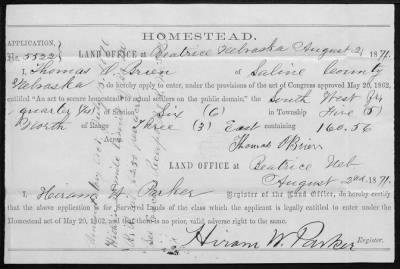 HOMESTEAD.
APPLICATION,
No. 5522
LAND OFFICE at Beatrice Nebraska August 2 1871.
I, Thomas O'Brien of Saline County
Nebraska do hereby apply to enter, under the provisions of the act of Congress approved May 20, 1862,
entitled "An act to secure homestead to equal settlers on the public domain," the South West 1/4
quarter of Section Six (6) in Township Five (5)
North of Range Three (3) East containing 160.56
Thomas O'Brien
LAND OFFICE at Beatrice Neb
August 2nd 1871.
I, Hiram W. Parker Register of the Land Office, do hereby certify
that the above application is for Surveyed Lands of the class which the applicant is legally entitled to enter under the
Homestead act of May 20, 1862, and that there is no prior, valid adverse right to the same.
Hiram W. Parker
Register.